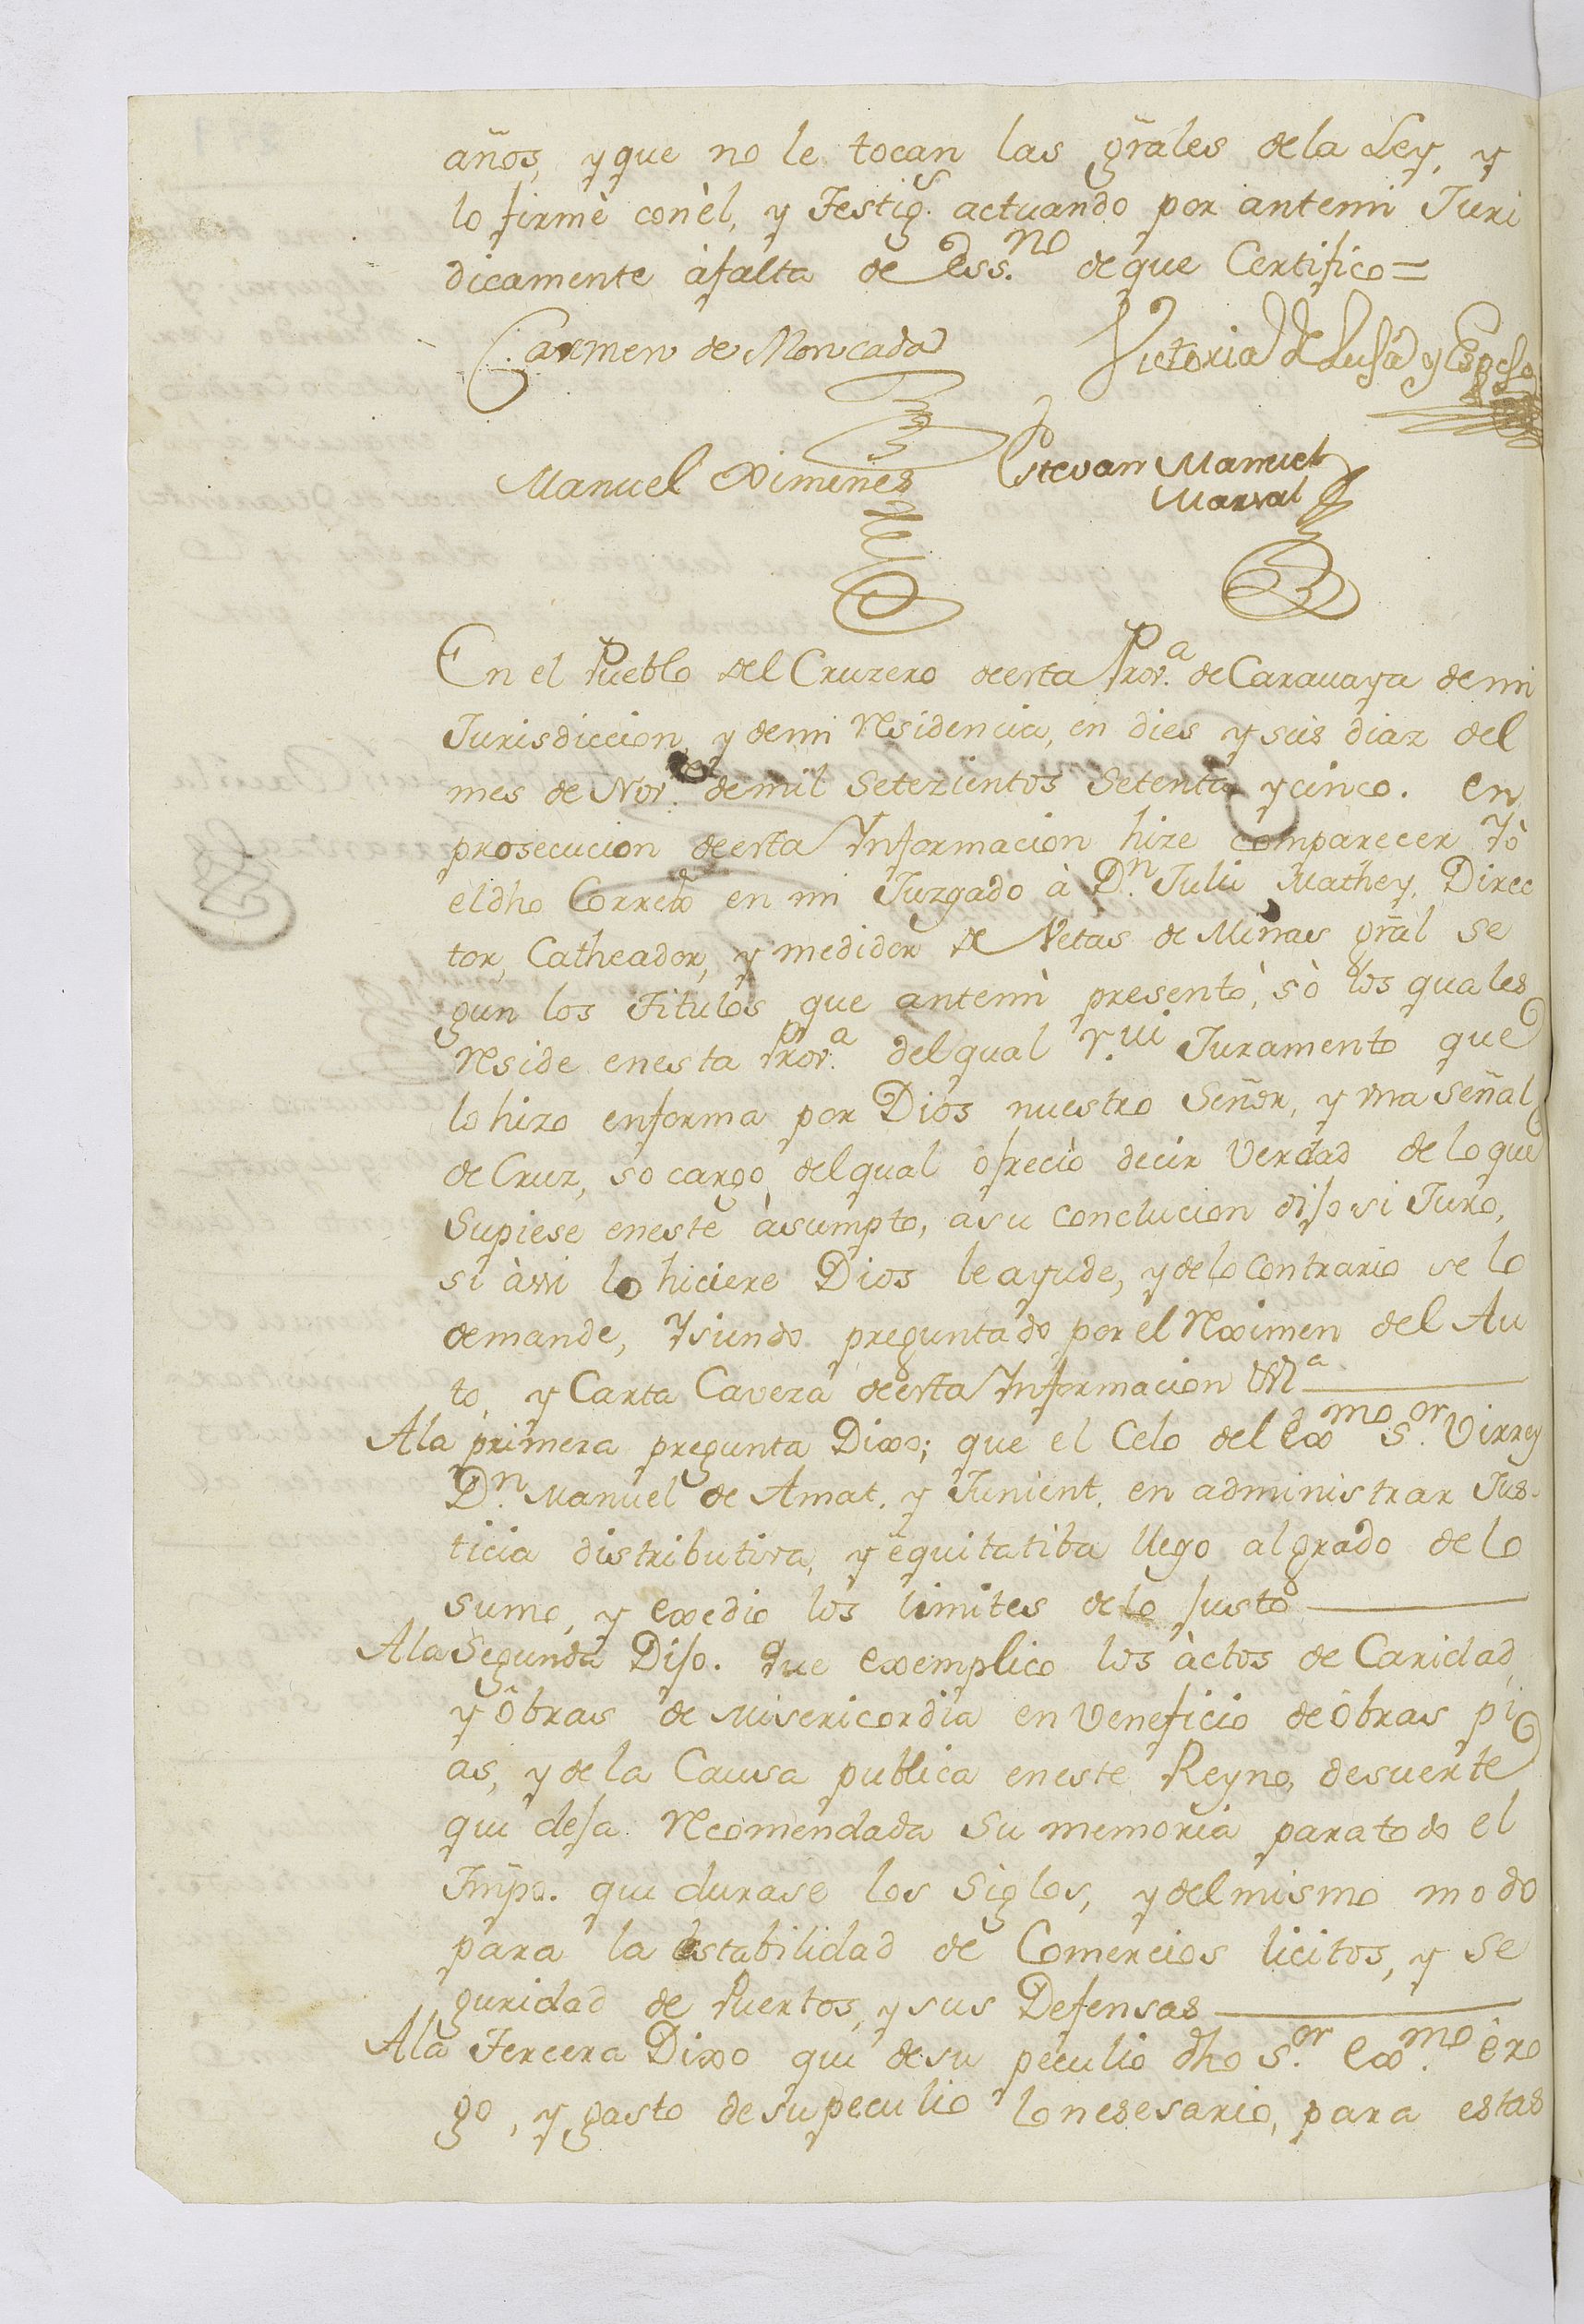 años, y que no le tocan las gr̃ales de la Ley, y
lo firmè con èl, y Testig.s actuando por antemi Juri
dicamente à falta de Ess.no de que Certifico =
Carmen de Moncada
Victoria de
Manuel Ximenes
Estevan Manuel
Marval
En el Pueblo del Cruzero de esta Prov.a de Caravaya de mi
Jurisdiccion, y de mi Residencia, en dies y seis diaz del
mes de Nov.e de mil Setezientos Setenta y cinco. en
prosecucion de esta Informacion hize comparecer Yò
el dho Correxor en mi Juzgado à D.n Juli Mathey, Direc
tor, Catheador, y medidor de Vetas de Minas gr̃al se
gun los Titulos que antemi presentò, sò los quales
Reside en esta Prov.a del qual r.vi Juramento que
lo hizo en forma por Dios nuestro Señor, y vna señal
de Cruz, so cargo del qual ofreciò decir verdad de lo que
Supiese en este àsumpto, a su conclucion dijo si Juro,
si àssi lo hiciere Dios le ayude, y de lo contrario se lo
demande, Y siendo preguntado por el Reximen del Au
to, y Carta Cavera de esta Informacion
A la primera pregunta Dixo; que el Celo del Exmo S.or Virrey
D.n Manuel de Amat, y Junient, en administrar Jus-
ticia distributiva, y equitatiba llego al grado de lo
sumo, y exedio los limites de lo justo
A la Segunda Dijo. que exemplico los àctos de Caridad,
y òbras de Misericordia en veneficio de òbras pi
as, y de la Causa publica en este Reyno, desuerte
que deja Recomendada su memoria para todo el
Tiñpo. que durase los Siglos, y del mismo modo
para la estabilidad de Comercios licitos, y se
guridad de Puertos, y sus Defensas
A la Tercera Dixo que de su peculio dho S.or Ex.mo ero
go, y gasto de su peculio lo nesesario, para estas